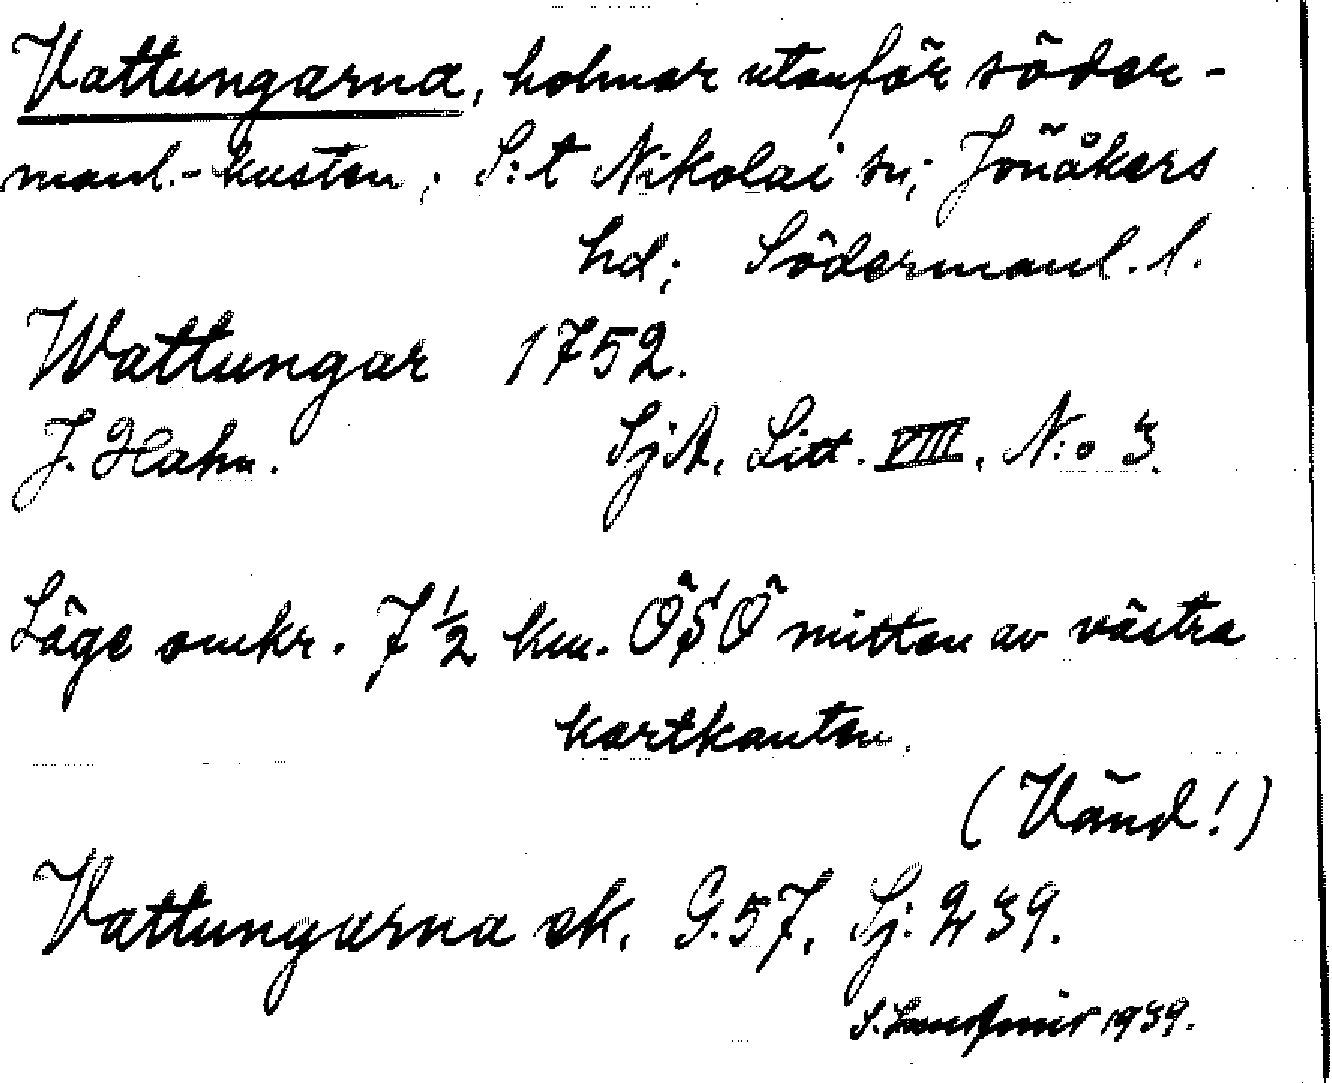 Vattungarna, holmar utanför söder-
manl.-kusten; S:t Nikolai sn; Jönåkers
hd; Södermanl. l.
Wattungar 1752.
J. Hahn. SjA, Litt. VIII, N:o 3.
Läge omkr. 7 1/2 km. ÖSÖ mitten av västra
kartkanten.
(Vänd!)
Vattungarna ek. G.57, Sj: 239.
S. 1939.